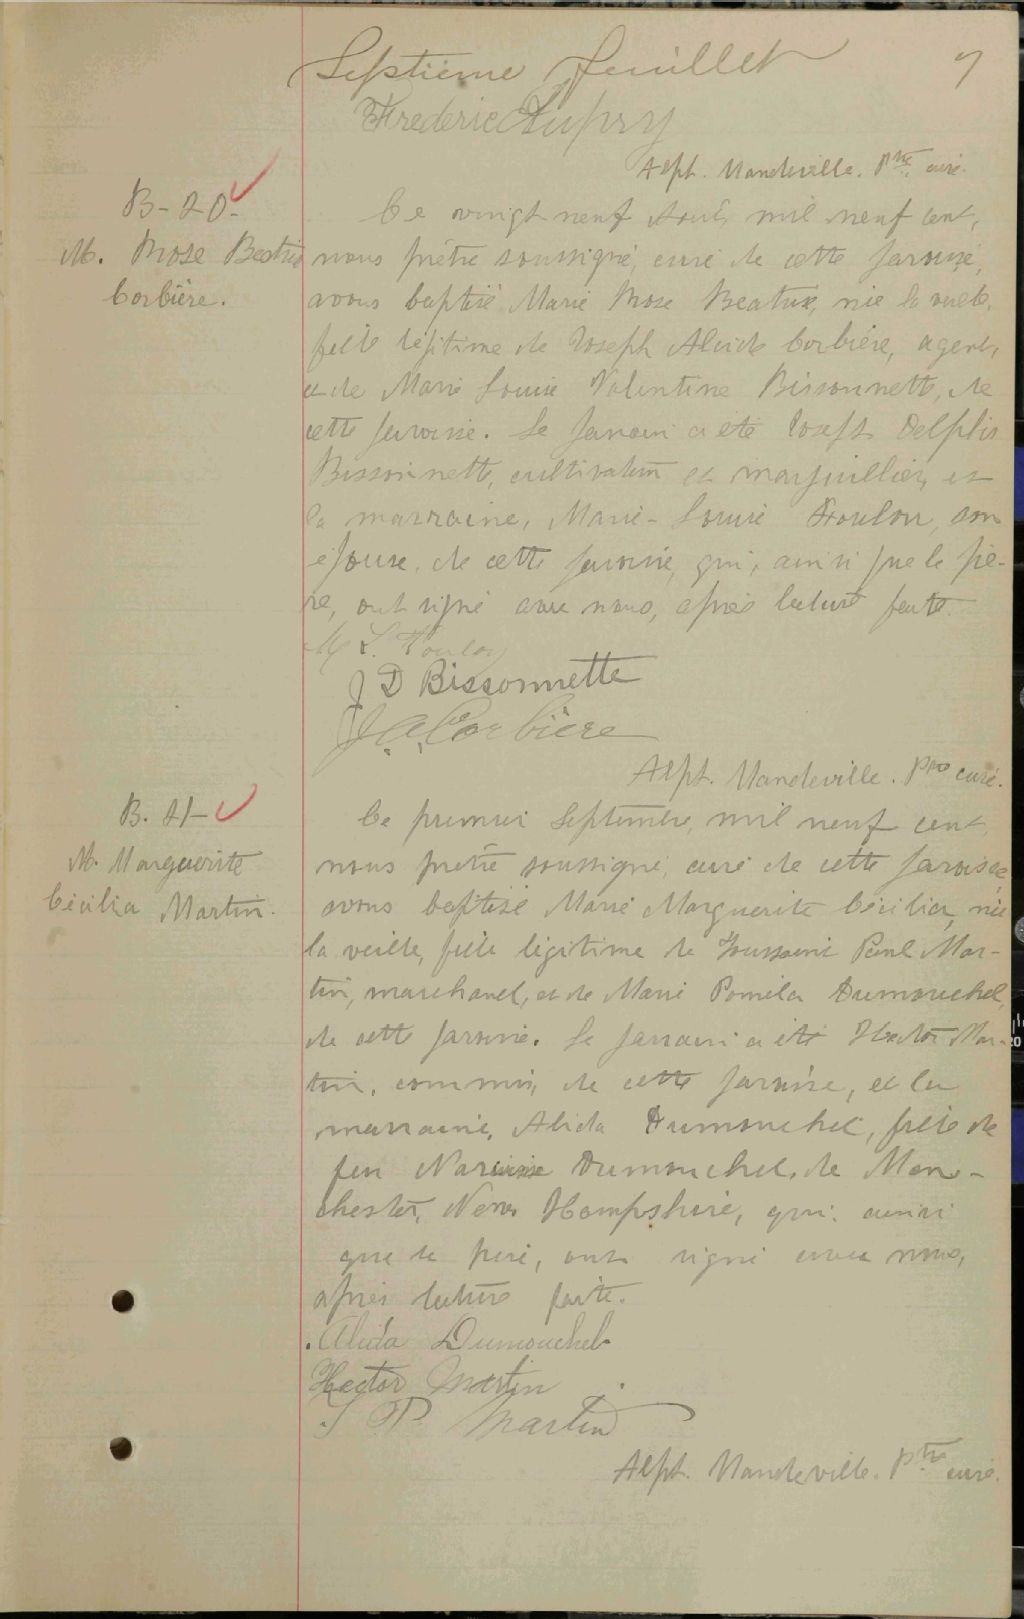 Septième feuillet 7
Frederic Dupry
Alph. Mandeville. Ptre curé.
B-20-
M. Rose Beatrix
Corbière.
Ce vingt neuf Août, mil neuf cent,
nous prêtre soussigné, curé de cette paroisse,
avons baptisé Marie Rose Beatrix, née la veille,
fille légitime de Joseph Alcide Corbière, agent,
et de Marie Louise Valentine Bissonnette, de
cette paroisse. Le parrain a été Joseph Delphis
Bissonnette, cultivateur et marguillier, et
la marraine, Marie-Louise Doulon, son
épouse, de cette paroisse, qui, ainsi que le pè-
re, ont signé avec nous, après lecture faite.
M L.
J D Bissonnette
J. A. Corbière
Alph. Mandeville. Ptre curé.
B. 21-
M. Marguerite
Cécilia Martin.
Ce premier Septembre, mil neuf cent,
nous prêtre soussigné, curé de cette paroisse,
avons baptisé Marie Marguerite Cécilia, née
la veille, fille légitime de Toussaint Paul Mar-
tin, marchand, et de Marie Pomela Dumouchel,
de cette paroisse. Le parrain a été Hector Mar-
tin, commis, de cette paroisse, et la
marraine, Alida Dumouchel, fille de
feu Narcisse Dumouchel, de Man-
chester, New Hampshire, qui, ainsi
que le père, ont signé avec nous,
après lecture faite.
Alida Dumouchel
Hector Martin
T P Martin
Alph. Mandeville. Ptre curé.